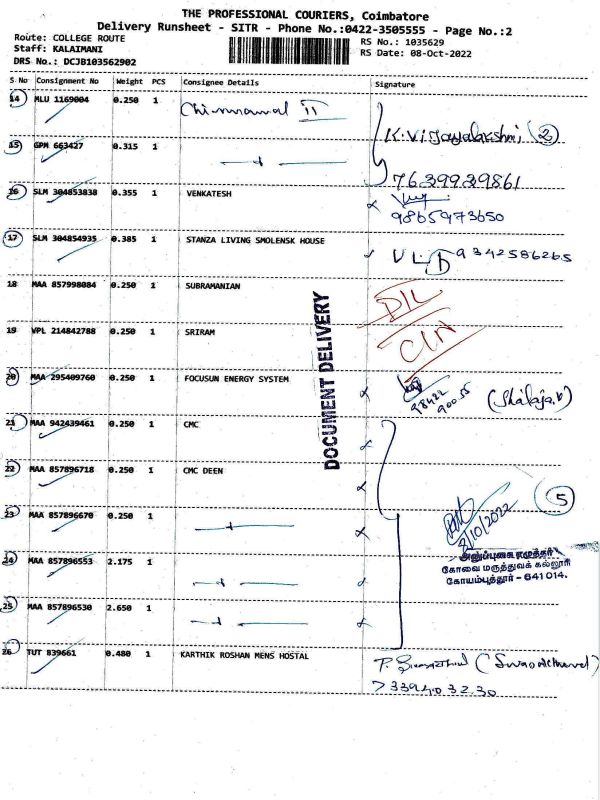 THE PROFESSIONAL COURIERS, Coimbatore
Delivery Runsheet - SITR - Phone No.:0422-3505555 - Page No.:2
Route: COLLEGE ROUTE
RS No.: 1035629
Staff: KALAIMANI
RS Date: 08-Oct-2022
DRS No.: DCJB103562902
S No Consignment No Weight PCS Consignee Details Signature
14 MLU 1169004 0.250 1
K.Vijayalakshmi 2
15 GPM 663427 0.315 1
7639939861
16 SLM 304853838 0.355 1 VENKATESH
9865973650
17 SLM 304854935 0.385 1 STANZA LIVING SMOLENSK HOUSE
9342586265
18 MAA 857998084 0.250 1 SUBRAMANIAN
19 VPL 214842788 0.250 1 SRIRAM
DOCUMENT DELIVERY
20 MAA 295409760 0.250 1 FOCUSUN ENERGY SYSTEM
98422
90055
(Shailaja.V)
21 MAA 942439461 0.250 1 CMC
22 MAA 857896718 0.250 1 CMC DEEN
5
23 MAA 857896670 0.250 1
8/10/2022
அனுப்புகை எழுத்தர்
24 MAA 857896553 2.175 1
கோவை மருத்துவக் கல்லூரி
கோயம்புத்தூர் - 641 014.
25 MAA 857896530 2.650 1
26 TUT 839661 0.480 1 KARTHIK ROSHAN MENS HOSTAL
7339403230